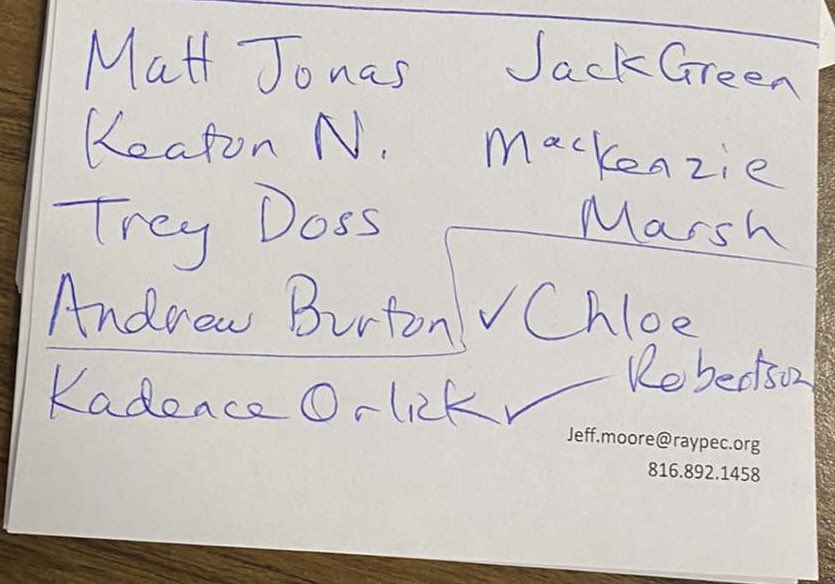 Matt Jonas
Jack Green
Keaton N.
Mackenzie
Marsh
Trey Doss
Andrew Burton
✓ Chloe
Robertson
Kadence Orlick ✓
Jeff.moore@raypec.org
816.892.1458